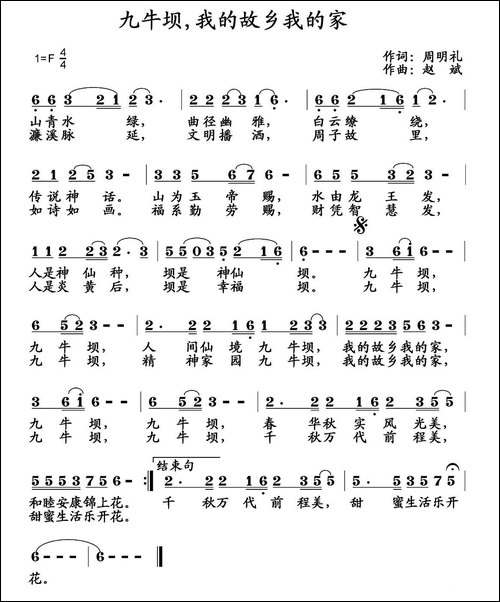 九牛坝,我的故乡我的家
1=F 4/4
作词：周明礼
作曲：赵 斌
6 6 3 2 1 2 3· | 2 2 2 3 2 1· | 6 6 3 2 1 6 1· |
山青水 绿， 曲径幽 雅， 白云缭 绕，
濂溪脉 延， 文明播 洒， 周子故 里，
2 1 2 5 3 - | 5 5 5 6 7 6 - | 6 5 5 3 2 3 -
传说神 话。 山为玉 帝赐， 水由龙 王发，
如诗如 画。 福系勤 劳赐， 财凭智 慧发，
1 1 2 2 3 3· | 5 5 0 3 5 2 1 6 | 6 - - - | 3 6 1 - -
人是神 仙种， 坝是 神仙 坝。 九 牛坝，
人是炎 黄后， 坝是 幸福 坝。 九 牛坝，
6 5 2 3 - - | 2· 2 2 1 6 1 2 3 3 | 2 2 2 3 5 6 5 - |
九 牛 坝， 人 间仙 境 九 牛坝， 我的故乡我的家，
九 牛 坝， 精 神家 园 九牛坝， 我的故乡我的家，
3 6 1 - - | 6 5 2 3 - - | 2· 2 2 1 6 1 2 3 5 5 |
九 牛坝， 九 牛坝， 春 华秋 实 风 光美，
九 牛坝， 九 牛坝， 千 秋万 代 前 程美，
结束句
5 5 5 5 3 7 5 6 - :| 2· 2 2 1 6 1 2 3 5 5 | 5 - 5 3 5 7 5
和睦安康锦上花。 千 秋万 代 前 程美， 甜 蜜生活乐开
甜蜜生活乐开花。
6 - - - | 6 - - - |
花。